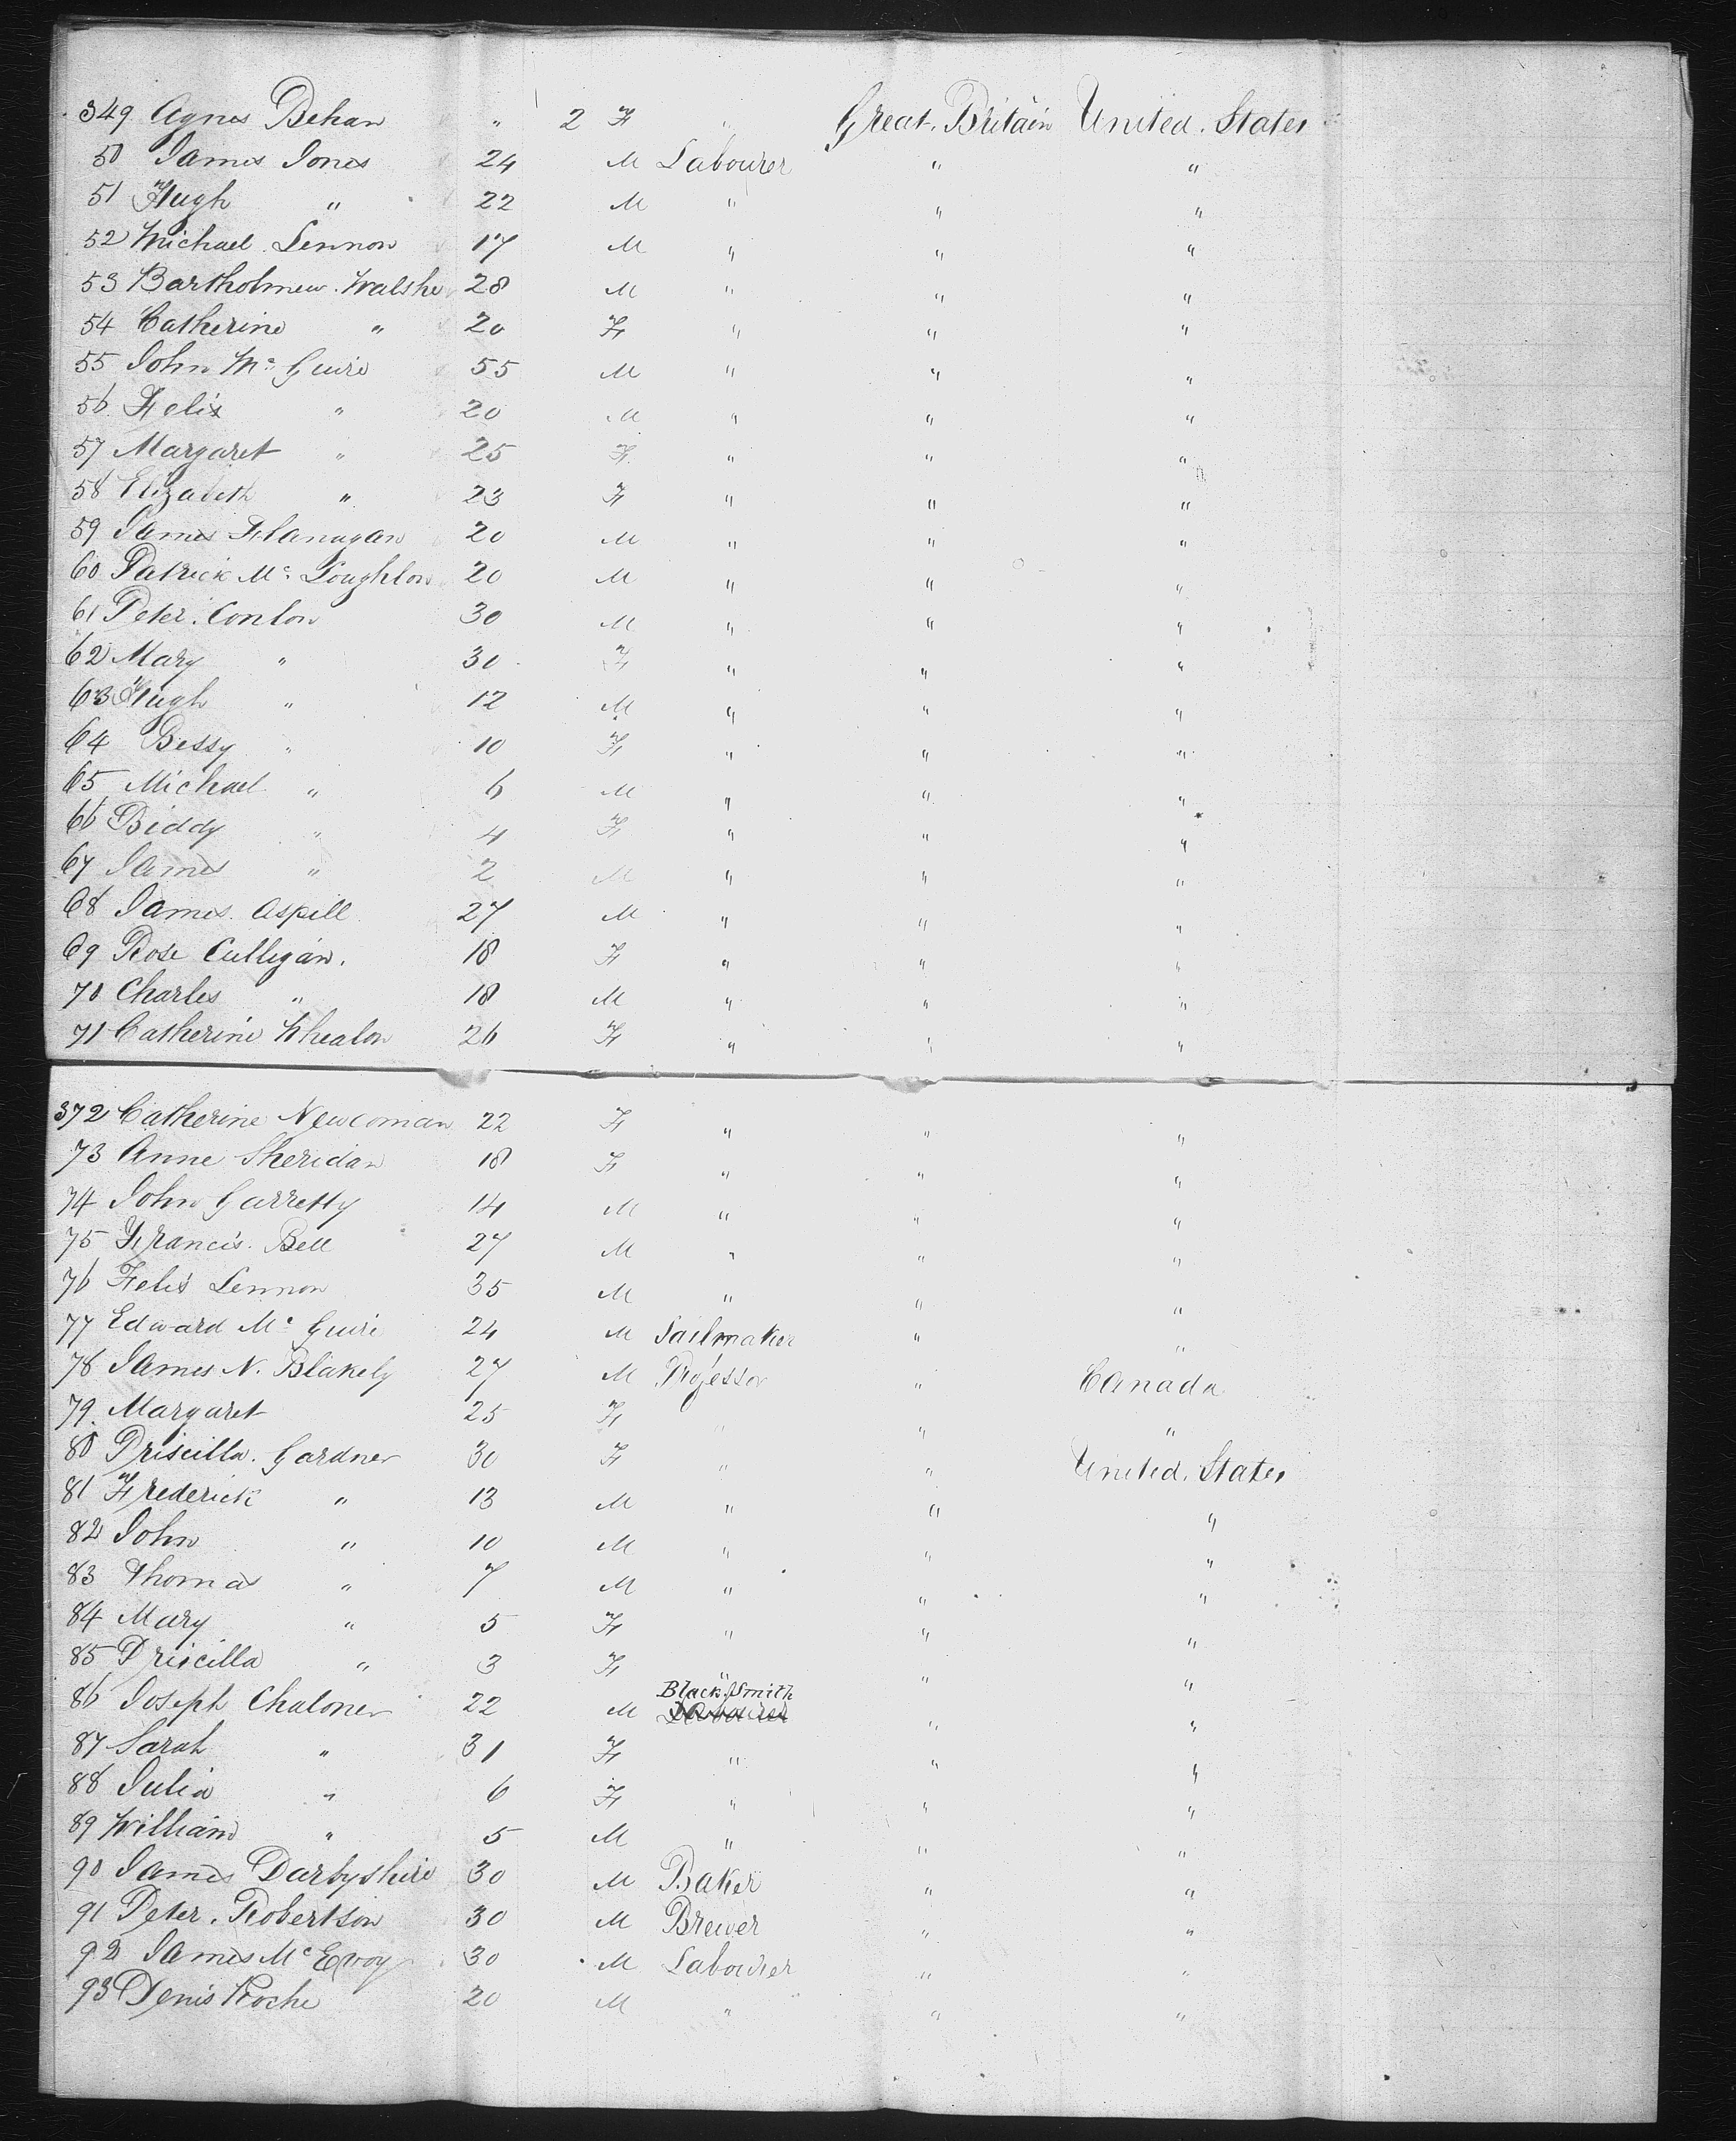 349 Agnes Behan " 2 F " Great Britain United States
50 James Jones 24 M Labourer " "
51 Hugh " 22 M " " "
52 Michael Lennon 17 M " " "
53 Bartholmew Walshe 28 M " " "
54 Catherine " 20 F " " "
55 John Mc Guire 55 M " " "
56 Felix " 20 M " " "
57 Margaret " 25 F " " "
58 Elizabeth " 23 F " " "
59 James Flanagan 20 M " " "
60 Patrick Mc Loughlon 20 M " " "
61 Peter Conlon 30 M " " "
62 Mary " 30 F " " "
63 Hugh " 12 M " " "
64 Bessy " 10 F " " "
65 Michael " 6 M " " "
66 Biddy " 4 F " " "
67 James " 2 M " " "
68 James Aspill 27 M " " "
69 Rose Culligan. 18 F " " "
70 Charles " 18 M " " "
71 Catherine Whealon 26 F " " "
372 Catherine Newcoman 22 F " " "
73 Anne Sheridan 18 F " " "
74 John Garretty 14 M " " "
75 Francis Bell 27 M " " "
76 Felis Lennon 35 M " " "
77 Edward Mc Guire 24 M Sailmaker " "
78 James N. Blakely 27 M Professor " Canada
79 Margaret 25 F " " "
80 Priscilla Gardner 30 F " " United States
81 Frederick " 13 M " " "
82 John " 10 M " " "
83 Thomas " 7 M " " "
84 Mary " 5 F " " "
85 Priscilla " 3 F " " "
86 Joseph Chaloner 22 M Black Smith Labourer " "
87 Sarah " 31 F " " "
88 Julia " 6 F " " "
89 William " 5 M " " "
90 James Darbyshire 30 M Baker " "
91 Peter Robertson 30 M Brewer " "
92 James Mc Evoy 30 M Labourer " "
93 Denis Roche 20 M " " "